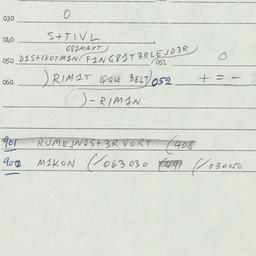 030 0
040 S+TIVL
GRIMANT)
050 DIS+IXOTMIN(FINGRIT3RLEJD3R) 0
051
060 )RIMIT QGLE BELT)052 + = -
)-RIMIN
901 RUMEJNIS+3RVORT (408
902 MIKON (/063030 (/030050